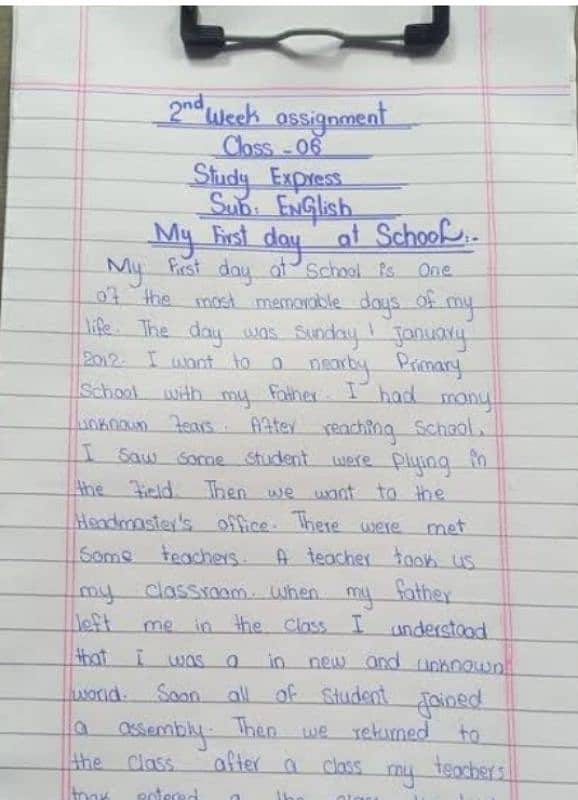 2nd Week assignment
Class - 06
Study Express
Sub: ENGlish
My First day at School:-
My first day at School is One
of the most memorable days of my
life. The day was Sunday 1 January
2012. I want to a nearby Primary
School with my Father. I had many
unknown fears. After reaching School,
I Saw Some student were plying in
the field. Then we want to the
Headmaster's office. There were met
Some teachers. A teacher took us
my classroom. when my father
left me in the class I understood
that i was a in new and unknown
world. Soon all of Student joined
a assembly. Then we returned to
the class after a class my teachers
entered a the